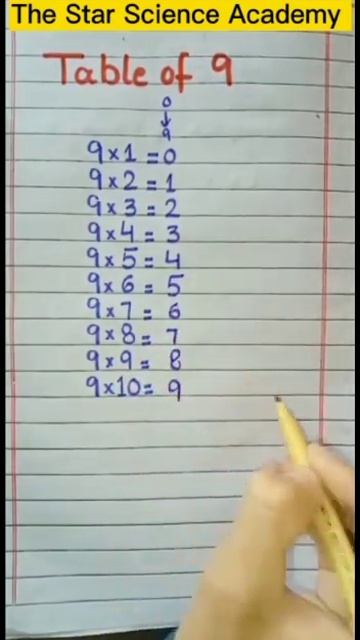 The Star Science Academy
Table of 9
0
↓
9
9×1=0
9×2=1
9×3=2
9×4=3
9×5=4
9×6=5
9×7=6
9×8=7
9×9=8
9×10=9